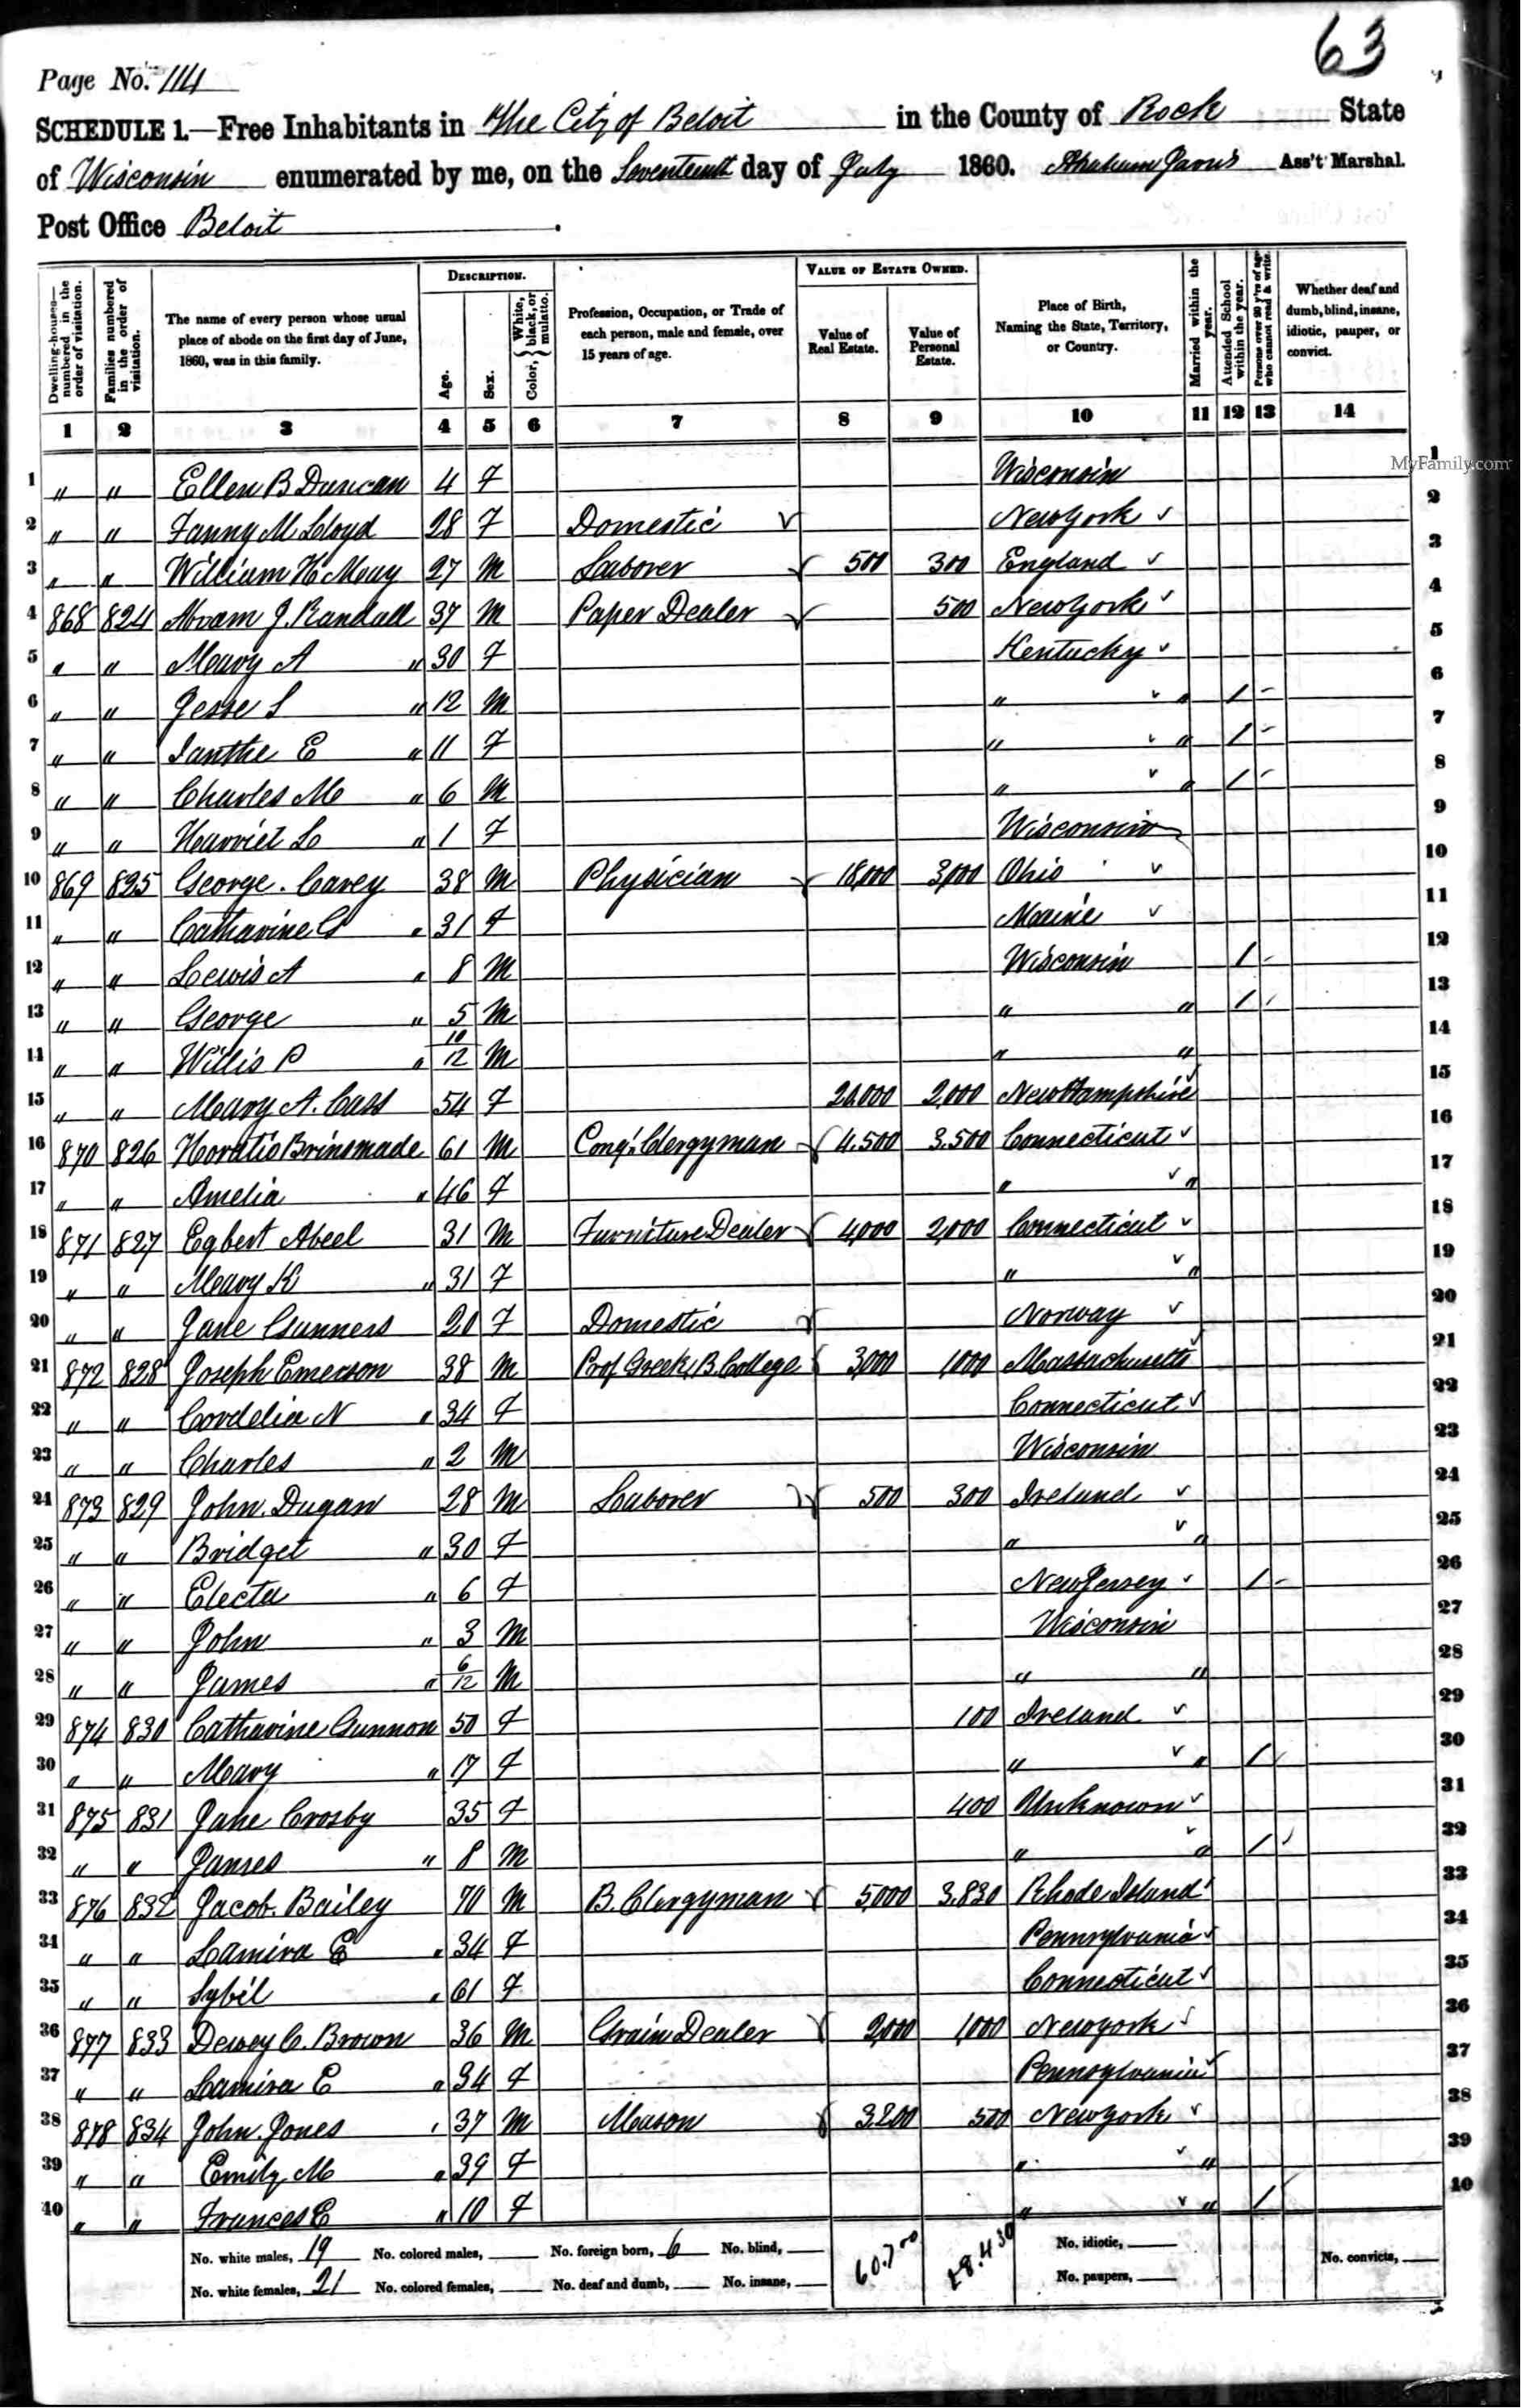 63
Page No. 114
SCHEDULE 1.—Free Inhabitants in The City of Beloit in the County of Rock State
of Wisconsin enumerated by me, on the Seventeenth day of July 1860. Ass't Marshal.
Post Office Beloit
Dwelling-houses—numbered in the order of visitation. Families numbered in the order of visitation. The name of every person whose usual place of abode on the first day of June, 1860, was in this family. DESCRIPTION. Age. Sex. Color, { White, black, or mulatto. Profession, Occupation, or Trade of each person, male and female, over 15 years of age. VALUE OF ESTATE OWNED. Value of Real Estate. Value of Personal Estate. Place of Birth, Naming the State, Territory, or Country. Married within the year. Attended School within the year. Persons over 20 y'rs of age who cannot read & write. Whether deaf and dumb, blind, insane, idiotic, pauper, or convict.
1 2 3 4 5 6 7 8 9 10 11 12 13 14
MyFamily.com
1 " " Ellen B Duncan 4 F Wisconsin 1
2 " " Fanny M Lloyd 28 F Domestic New York 2
3 " " William H May 27 M Laborer 500 300 England 3
4 868 824 Abram J. Randall 37 M Paper Dealer 500 New York 4
5 " " Mary A " 30 F Kentucky 5
6 " " Jesse S " 12 M " " / 6
7 " " Ianthe E " 11 F " " / 7
8 " " Charles M " 6 M " " / 8
9 " " Harriet L " 1 F Wisconsin 9
10 869 825 George Carey 38 M Physician 18,000 3,000 Ohio 10
11 " " Catharine " 31 F Maine 11
12 " " Lewis A " 8 M Wisconsin / 12
13 " " George " 5 M " " / 13
14 " " Willis P " 10/12 M " " 14
15 " " Mary A. Cass 54 F 2,000 New Hampshire 15
16 870 826 Horatio Brinsmade 61 M Cong'l Clergyman 4,500 3,500 Connecticut 16
17 " " Amelia " 46 F " " 17
18 871 827 Egbert Abeel 31 M Furniture Dealer 4,000 2,000 Connecticut 18
19 " " Mary K " 31 F " " 19
20 " " Jane Gunners 20 F Domestic Norway 20
21 872 828 Joseph Emerson 38 M Prof Greek, B. College 3,000 1000 Massachusetts 21
22 " " Cordelia N " 34 F Connecticut 22
23 " " Charles " 2 M Wisconsin 23
24 873 829 John Dugan 28 M Laborer 500 300 Ireland 24
25 " " Bridget " 30 F " " 25
26 " " Electa " 6 F New Jersey / 26
27 " " John " 3 M Wisconsin 27
28 " " James " 6/12 M " " 28
29 874 830 Catharine Gunnon 50 F 100 Ireland 29
30 " " Mary " 17 F " " / 30
31 875 831 Jane Crosby 35 F 400 Unknown 31
32 " " James " 8 M " " / 32
33 876 832 Jacob Bailey 70 M B. Clergyman 5,000 3,830 Rhode Island 33
34 " " Lamira E " 34 F Pennsylvania 34
35 " " Sybil " 61 F Connecticut 35
36 877 833 Dewey C. Brown 36 M Grain Dealer 2,000 1,000 New York 36
37 " " Lamira E " 34 F Pennsylvania 37
38 878 834 John Jones 37 M Mason 3,200 500 New York 38
39 " " Emily M " 39 F " " 39
40 " " Frances E " 10 F " " / 40
No. white males, 19 No. colored males, No. foreign born, 6 No. blind, 60.700 28.430 No. idiotic, No. convicts,
No. white females, 21 No. colored females, No. deaf and dumb, No. insane, No. paupers,